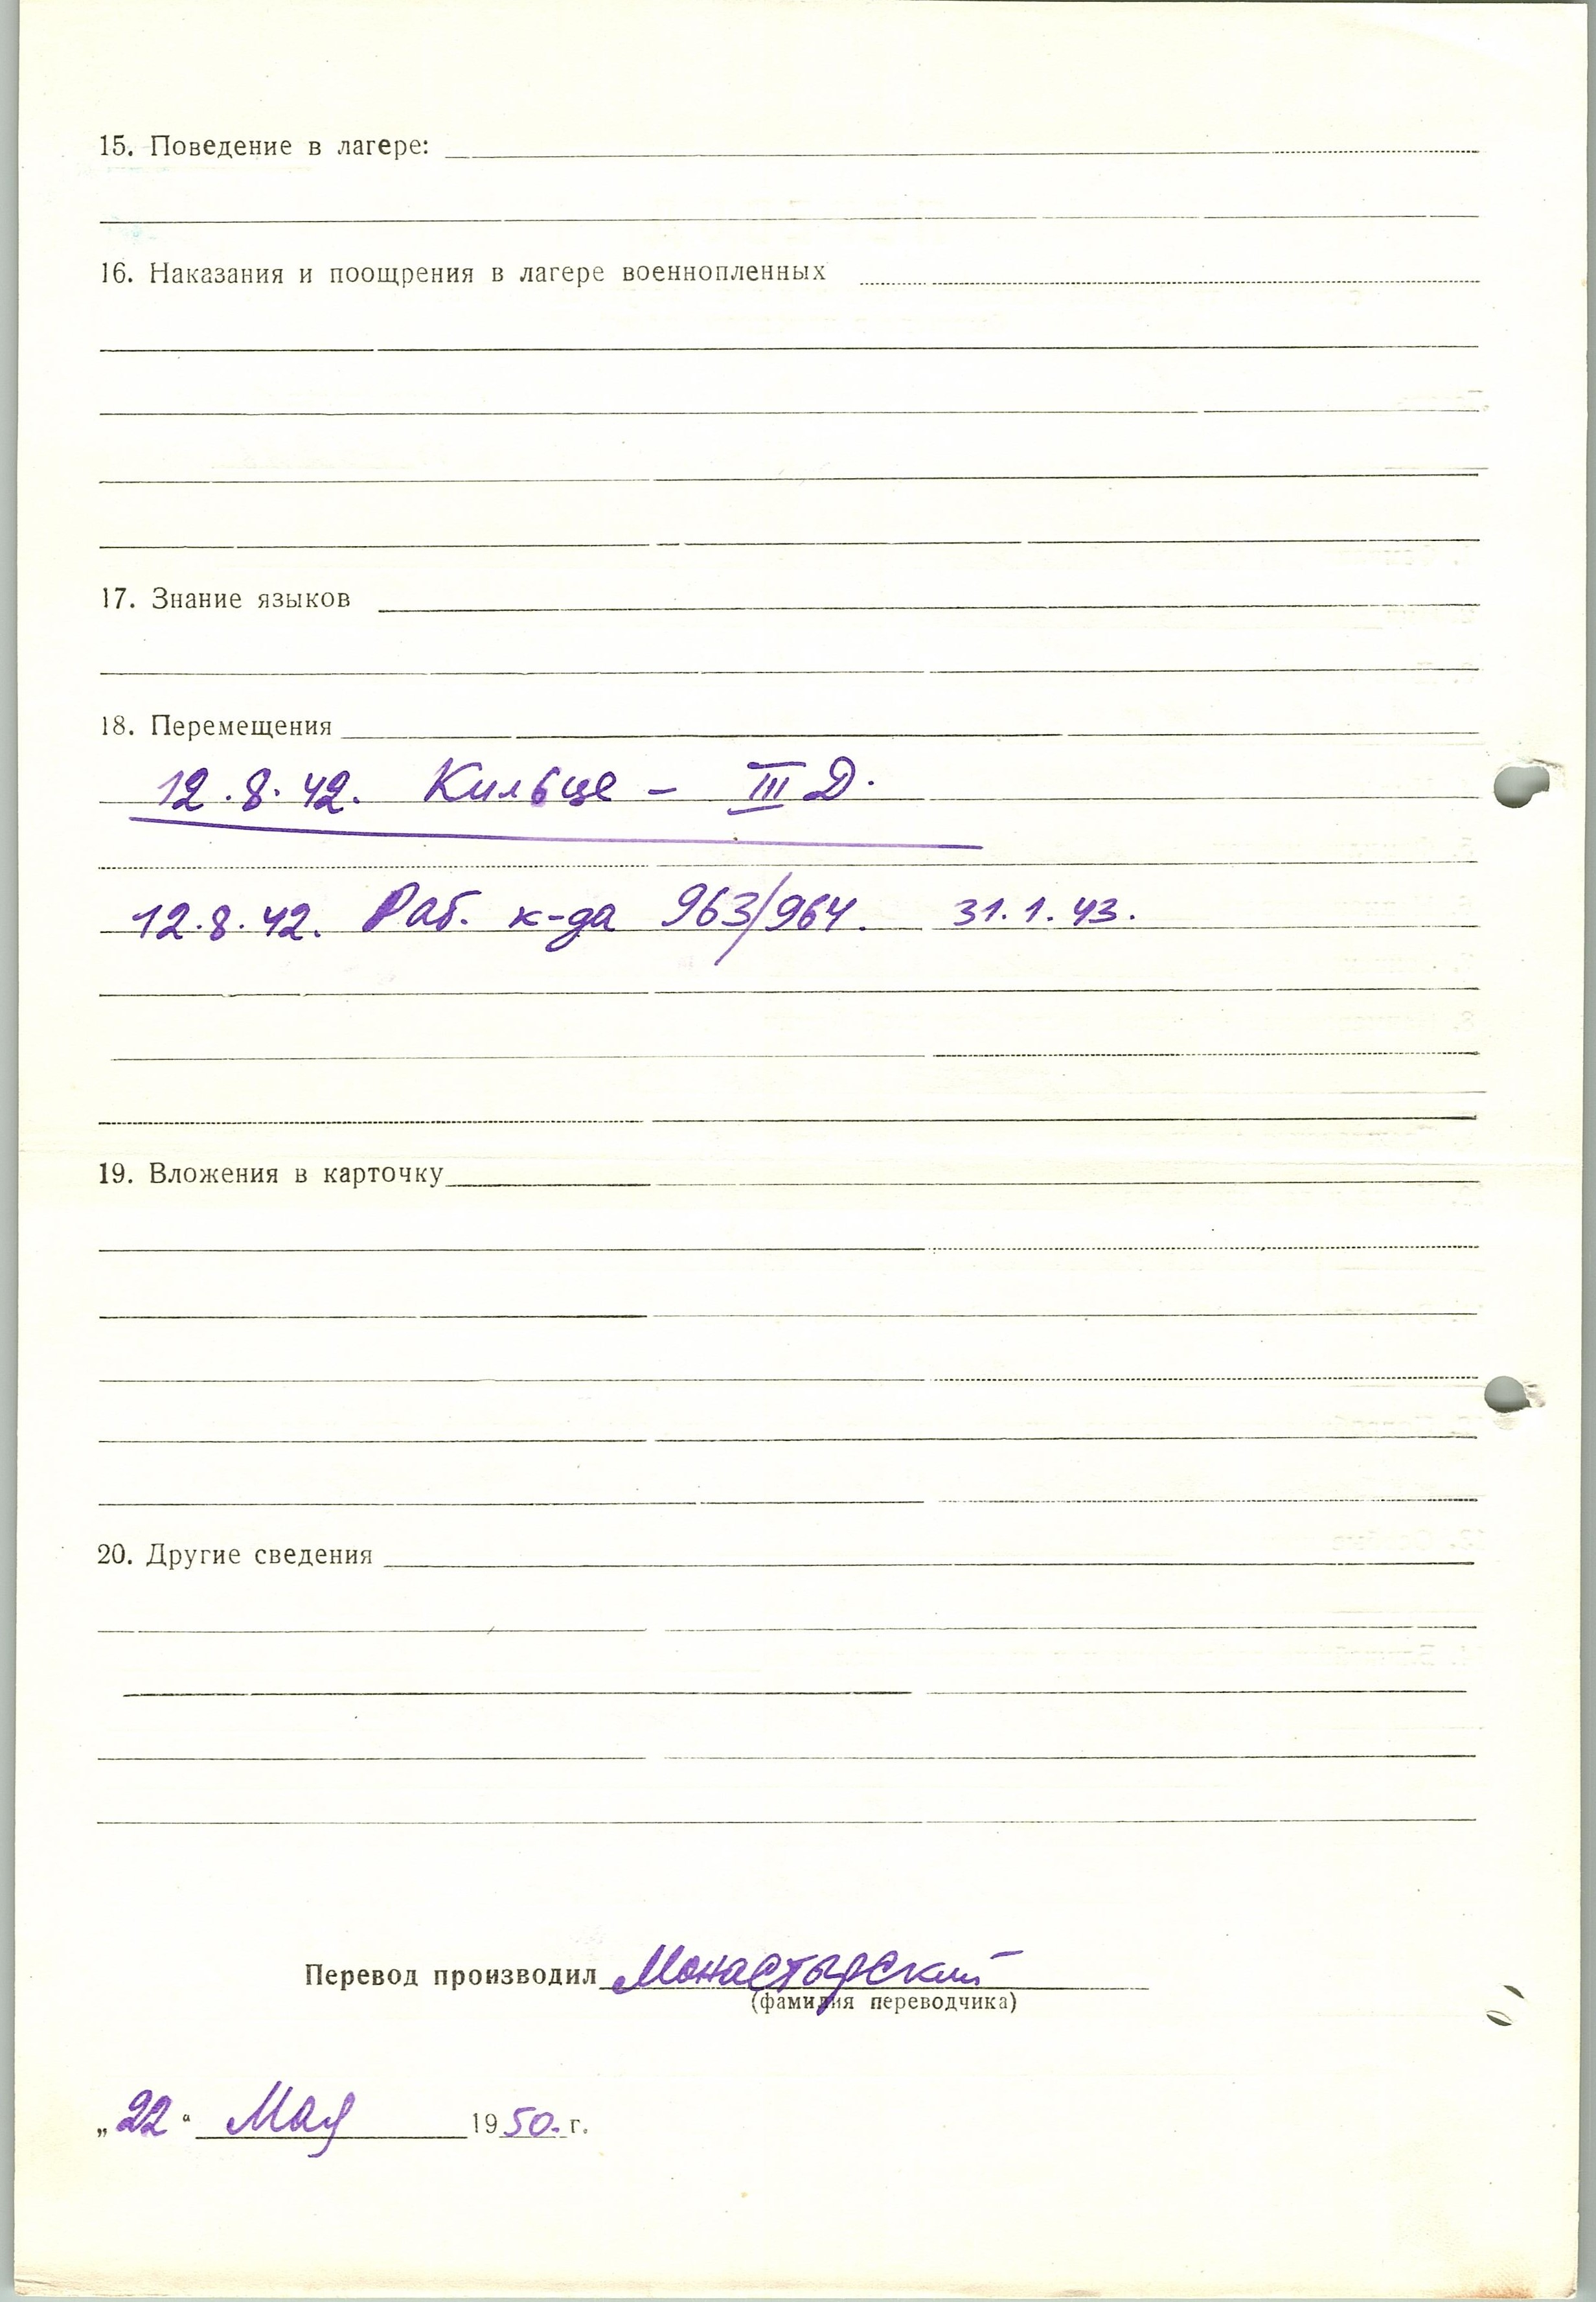 15. Поведение в лагере:
16. Наказания и поощрения в лагере военнопленных
17. Знание языков
18. Перемещения
12.8.42. Кильце – III Д.
12.8.42. Раб. к-да 963/964. 31.1.43.
19. Вложения в карточку
20. Другие сведения
Перевод производил Монастырский
(фамилия переводчика)
„22“ Мая 1950. г.